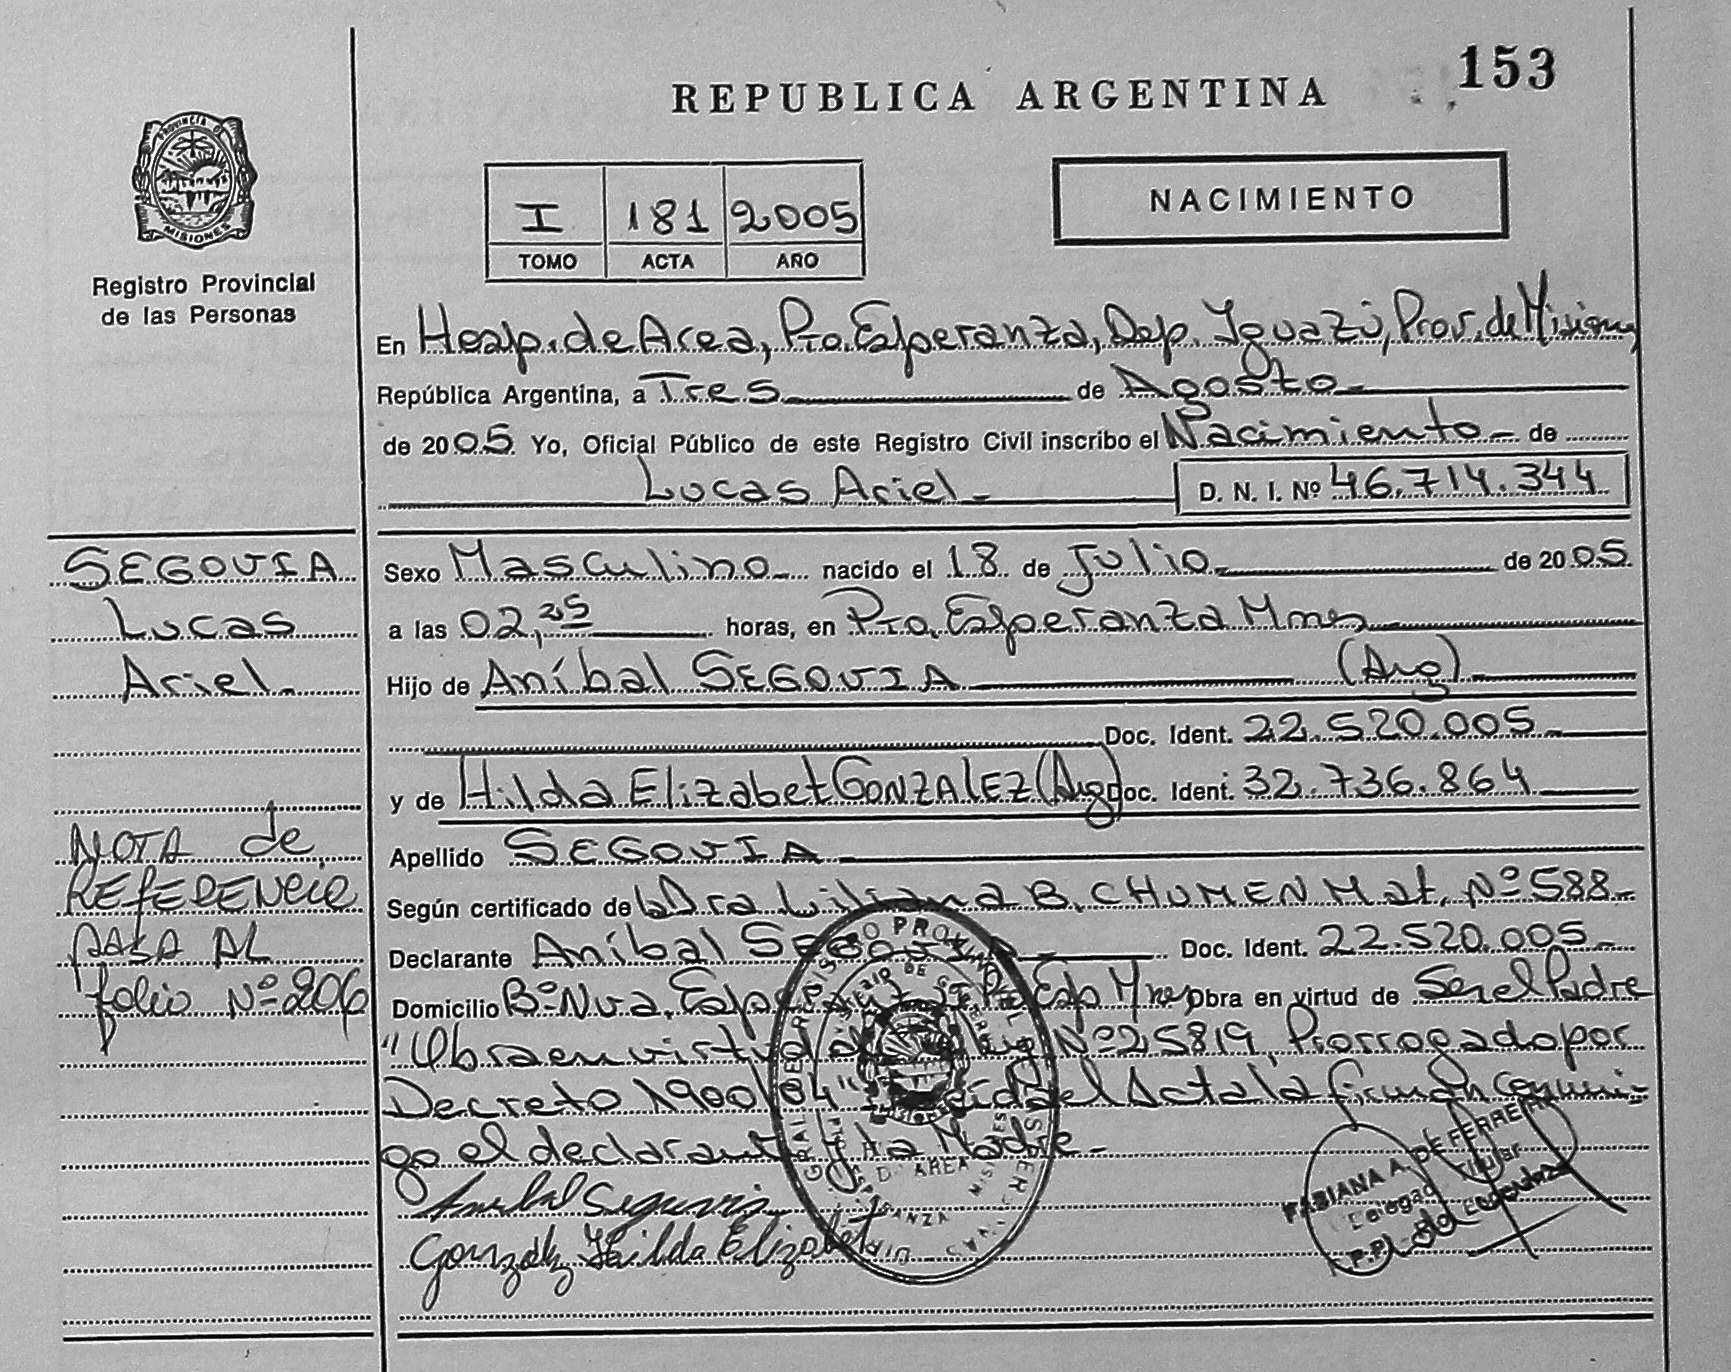 153
REPUBLICA ARGENTINA
PROVINCIA DE
MISIONES
Registro Provincial
de las Personas
I 181 2005
TOMO ACTA AÑO
NACIMIENTO
En Hosp. de Area, Pto. Esperanza, Dep. Iguazú, Prov. de Misiones
República Argentina, a Tres de Agosto
de 2005 Yo, Oficial Público de este Registro Civil inscribo el Nacimiento de
Lucas Ariel D. N. I. Nº 46.714.344
SEGOVIA
Lucas
Ariel
Sexo Masculino nacido el 18 de Julio de 2005
a las 02,25 horas, en Pto. Esperanza Mnes
Hijo de Aníbal SEGOVIA (Arg)
Doc. Ident. 22.520.005
y de Hilda Elizabet GONZALEZ (Arg) Doc. Ident. 32.736.864
Apellido SEGOVIA
Según certificado de la Dra Liliana B. CHUMEN Mat. Nº 588
Declarante Aníbal SEGOVIA Doc. Ident. 22.520.005
Domicilio Bº Nva. Esp Pto Esp Mnes Obra en virtud de Ser el Padre
"Obra en virtud de Ley Nº 25819, Prorrogado por
Decreto 1900/04" el Acta la firman conmi-
go el declarante la Madre
NOTA de
REFERENCIA
PASA AL
folio Nº 206
Anibal Segovia
Gonzalez Hilda Elizabet
FABIANA A. DE FERREIRA
Titular